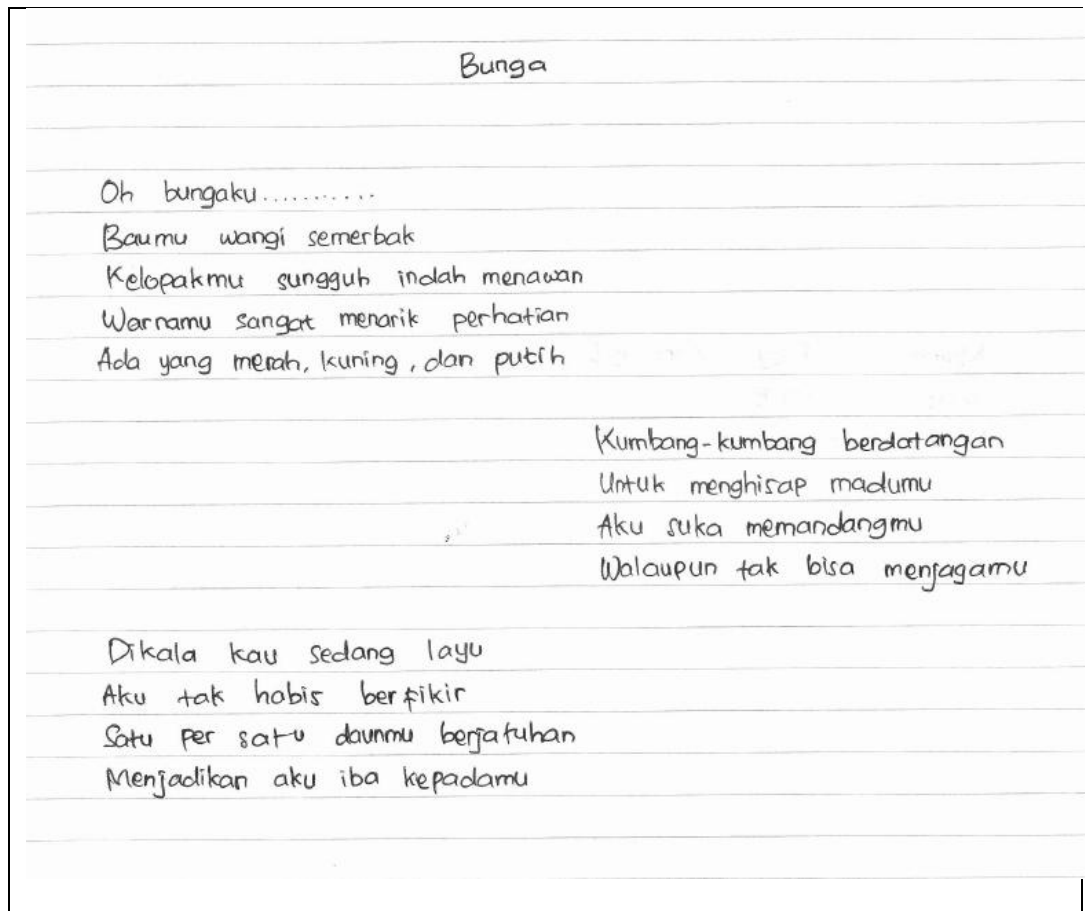 Bunga
Oh bungaku...........
Baumu wangi semerbak
Kelopakmu sungguh indah menawan
Warnamu sangat menarik perhatian
Ada yang merah, kuning, dan putih
Kumbang-kumbang berdatangan
Untuk menghisap madumu
Aku suka memandangmu
Walaupun tak bisa menjagamu
Dikala kau sedang layu
Aku tak habis berfikir
Satu per satu daunmu berjatuhan
Menjadikan aku iba kepadamu